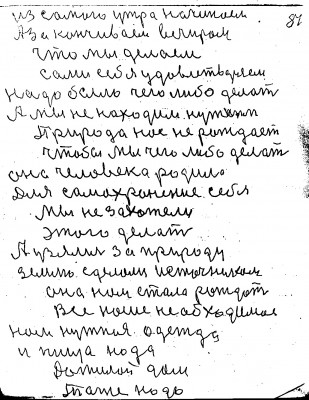 87
из самого утра начинаем
Аза кончиваем вечиром
что мы делаем
сами себя удовлетвариям
надо было чего либо делать
А мы не находим нужным
Природа нас не рождает
чтобы мы чего либо делат
она человека родила
Для самохранение себя
Мы не захотели
этого делат
А узялис за природу
землю сделали источником
она нам стала рождат
Все наше необходимое
нам нужная одежда
и пища нада
Да жилой дом
Таже надо